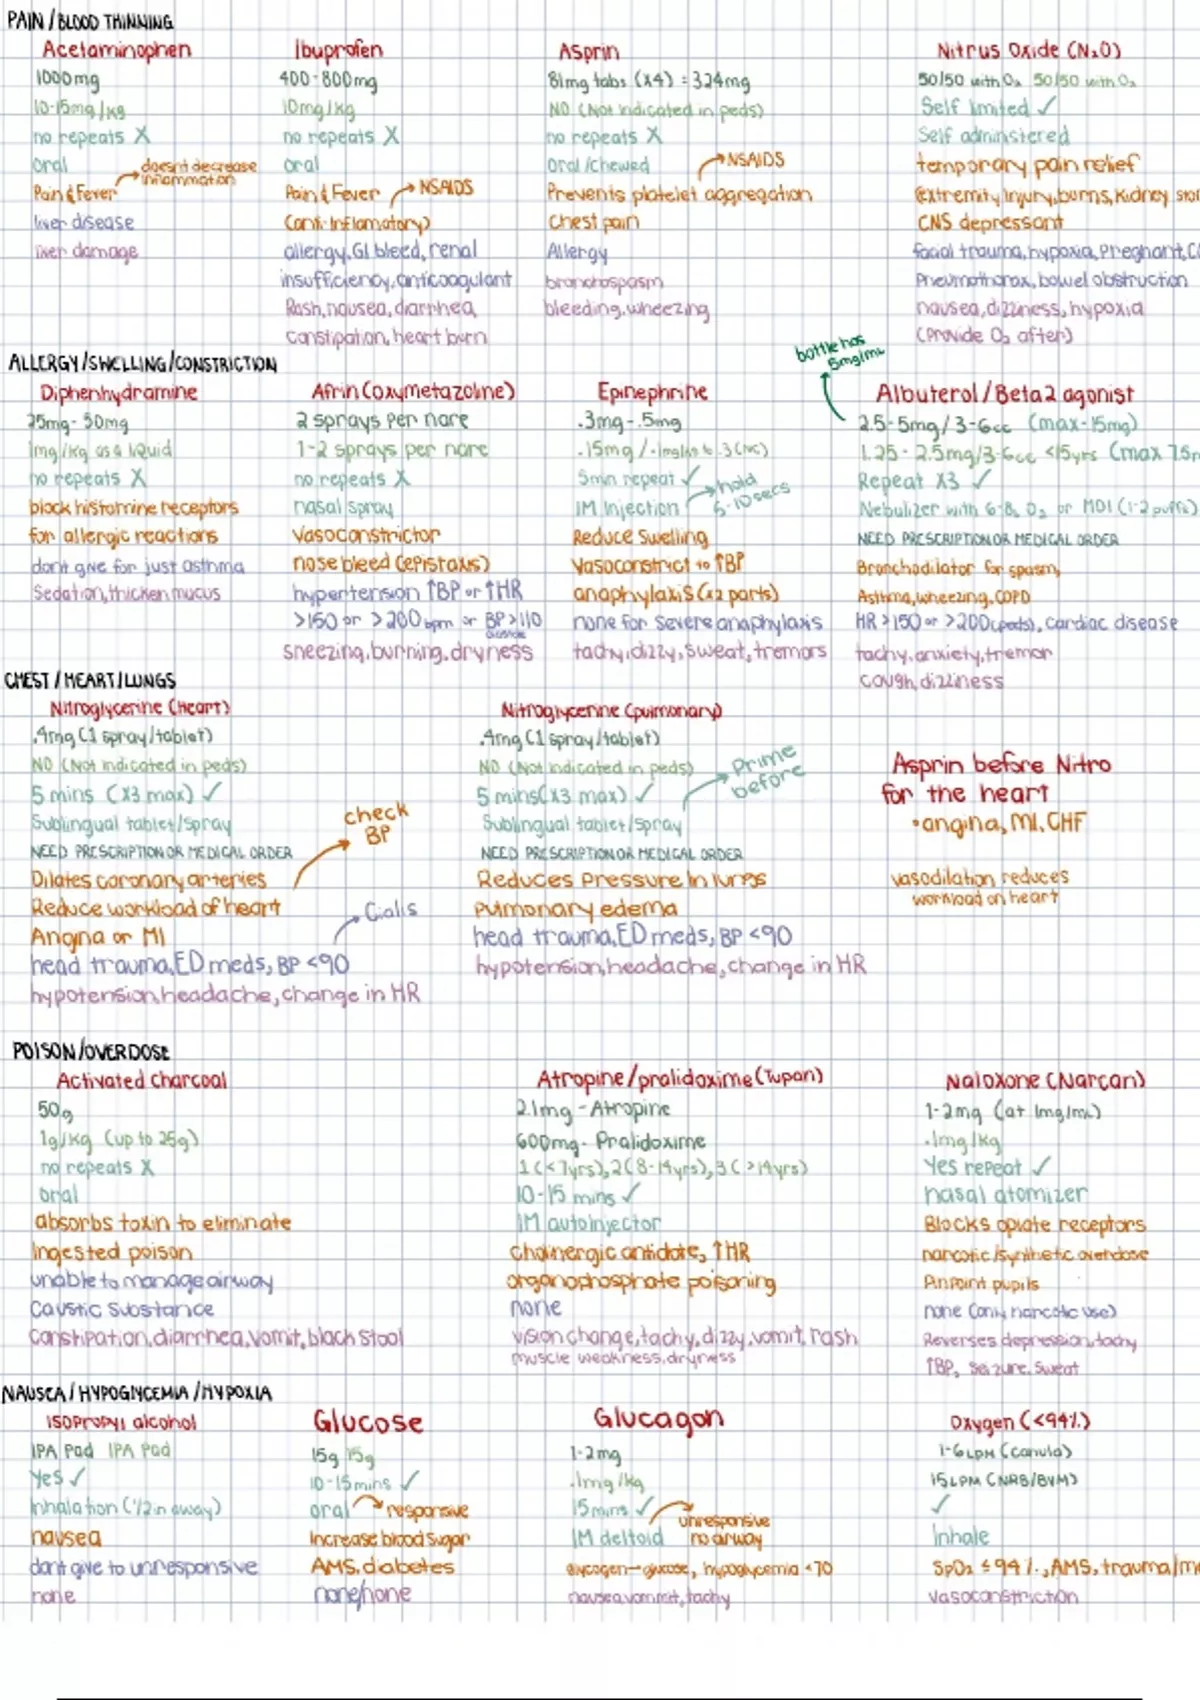 PAIN/BLOOD THINNING
Acetaminophen
1000mg
10-15mg/kg
no repeats X
oral
doesn't decrease
inflammation
Pain & Fever
liver disease
liver damage
Ibuprofen
400-800mg
10mg/kg
no repeats X
oral
Pain & Fever
NSAIDS
(anti-inflamatory)
allergy, GI bleed, renal
insufficiency, anticoagulant
Rash, nausea, diarrhea,
constipation, heart burn
Asprin
81mg tabs (x4) = 324mg
NO (Not indicated in peds)
no repeats X
Oral/chewed
NSAIDS
Prevents platelet aggregation
Chest pain
Allergy
bronchospasm
bleeding, wheezing
Nitrus Oxide (N₂O)
50/50 with O₂ 50/50 with O₂
Self limited ✓
Self administered
temporary pain relief
(extremity injury, burns, Kidney
CNS depressant
facial trauma, hypoxia, Pregnant,
Pneumothorax, bowel obstruction
nausea, dizziness, hypoxia
(Provide O₂ after)
ALLERGY/SWELLING/CONSTRICTION
Diphenhydramine
25mg-50mg
1mg/kg as a liquid
no repeats X
block histamine receptors
for allergic reactions
dont give for just asthma
Sedation, thicken mucus
Afrin (oxymetazoline)
2 sprays per nare
1-2 sprays per nare
no repeats X
nasal spray
Vasoconstrictor
nose bleed (epistaxis)
hypertension ↑BP or ↑HR
>150 or >200bpm or BP>110
sneezing, burning, dryness
Epinephrine
.3mg-.5mg
.15mg/.1mg/kg to .3
5min repeat ✓
hold
5-10secs
IM Injection
Reduce Swelling
Vasoconstrict to ↑BP
anaphylaxis (x2 parts)
none for Severe anaphylaxis
tachy, dizzy, sweat, tremors
bottle has
5mg/mL
Albuterol/Beta2 agonist
2.5-5mg/3-6cc (max-15mg)
1.25-2.5mg/3-6cc <15yrs (max 7.5m
Repeat X3 ✓
Nebulizer with 6-8L O₂ or MDI (1-2 puffs)
NEED PRESCRIPTION OR MEDICAL ORDER
Bronchodilator for spasm,
Asthma, wheezing, COPD
HR >150 or >200(peds), cardiac disease
tachy, anxiety, tremor
cough, dizziness
CHEST/HEART/LUNGS
Nitroglycerine (Heart)
.4mg (1 spray/tablet)
NO (Not indicated in peds)
5 mins (x3 max) ✓
Sublingual tablet/Spray
NEED PRESCRIPTION OR MEDICAL ORDER
check
BP
Dilates coronary arteries
Reduce workload of heart
Angina or MI
Cialis
head trauma, ED meds, BP <90
hypotension, headache, change in HR
Nitroglycerine (pulmonary)
.4mg (1 spray/tablet)
NO (Not indicated in peds)
Prime
before
5 mins (x3 max) ✓
Sublingual tablet/Spray
NEED PRESCRIPTION OR MEDICAL ORDER
Reduces Pressure in lungs
Pulmonary edema
head trauma, ED meds, BP <90
hypotension, headache, change in HR
Asprin before Nitro
for the heart
•angina, MI, CHF
vasodilation reduces
workload on heart
POISON/OVERDOSE
Activated charcoal
50g
1g/kg (up to 25g)
no repeats X
oral
absorbs toxin to eliminate
Ingested poison
unable to manage airway
Caustic Substance
Constipation, diarrhea, vomit, black stool
Atropine/pralidoxime (Tupan)
2.1mg - Atropine
600mg- Pralidoxime
1 (<7yrs), 2 (8-14yrs), 3 (>14yrs)
10-15 mins ✓
IM autoinjector
cholinergic antidote, ↑HR
organophosphate poisoning
none
vision change, tachy, dizzy, vomit, rash
muscle weakness, dryness
Naloxone (Narcan)
1-2mg (at 1mg/mL)
.1mg/kg
Yes repeat ✓
nasal atomizer
Blocks opiate receptors
narcotic/synthetic overdose
Pinpoint pupils
none (only narcotic use)
Reverses depression, tachy
↑BP, seizure, sweat
NAUSEA/HYPOGLYCEMIA/HYPOXIA
ISOPropyl alcohol
IPA Pad IPA Pad
Yes ✓
Inhalation (1/2in away)
nausea
dont give to unresponsive
none
Glucose
15g 15g
10-15mins ✓
oral
responsive
Increase blood sugar
AMS, diabetes
none/none
Glucagon
1-2mg
.1mg/kg
15mins ✓
unresponsive
no airway
IM deltoid
glycogen→glucose, hypoglycemia <70
nausea, vommit, tachy
Oxygen (<94%)
1-6LPM (canula)
15LPM (NRB/BVM)
✓
Inhale
SpO₂ ≤94%, AMS, trauma/me
vasoconstriction